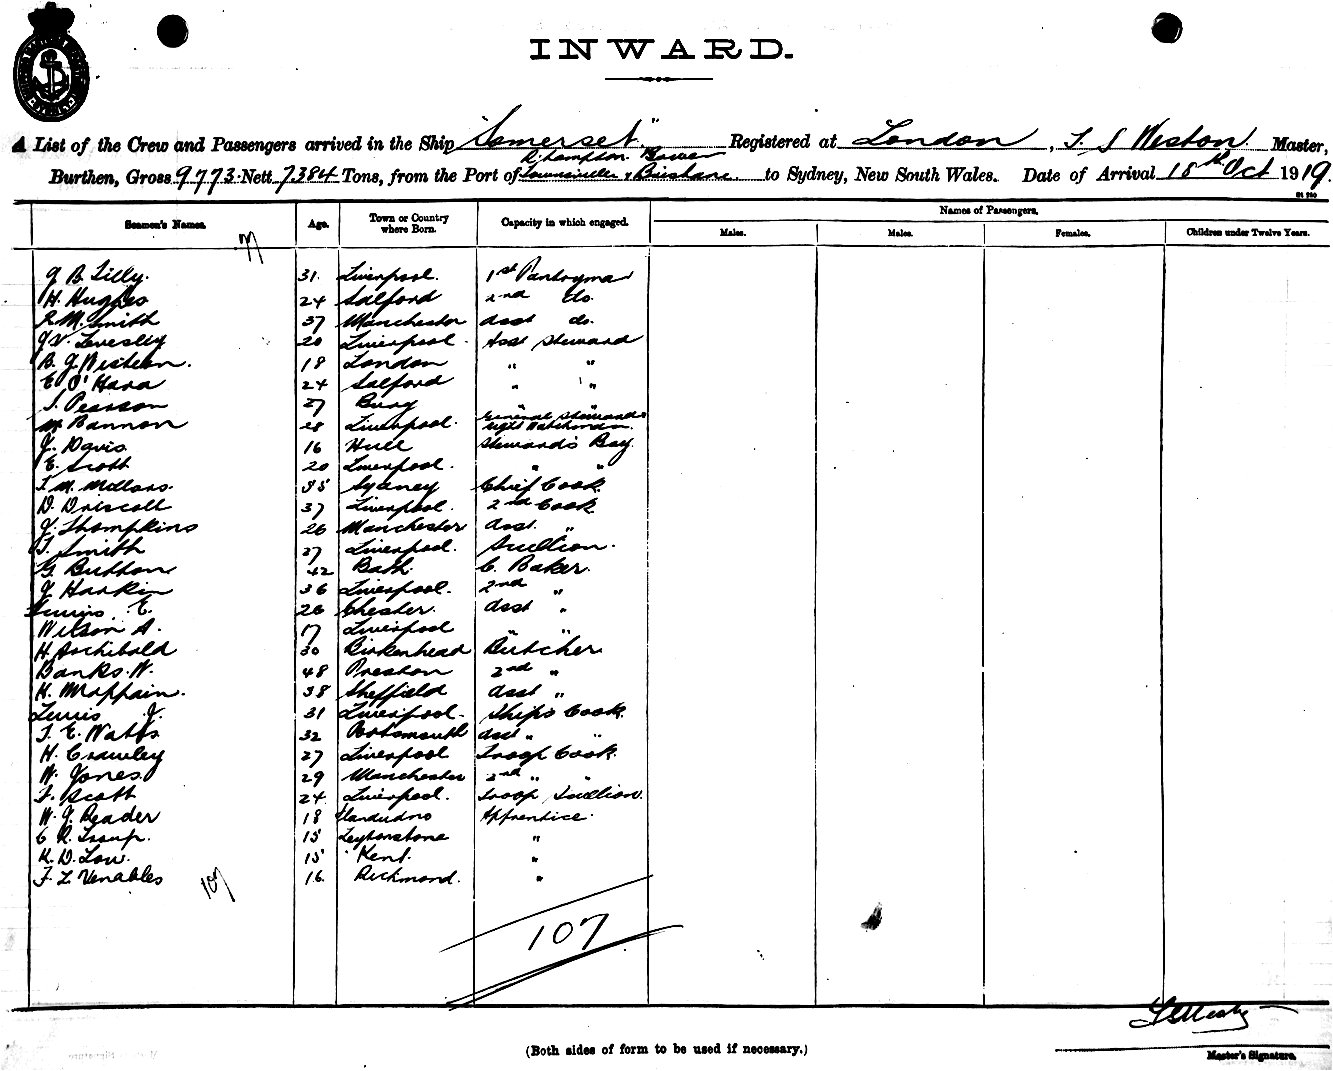 INWARD.
A List of the Crew and Passengers arrived in the Ship "Somerset" Registered at London, T. S Weston Master,
Burthen, Gross 9773 Nett 7384 Tons, from the Port of Townsville & Brisbane to Sydney, New South Wales. Date of Arrival 18th Oct 1919.
Seamen's Names. Age. Town or Country where Born. Capacity in which engaged. Names of Passengers.
Males. Males. Females. Children under Twelve Years.
J B Lilly. 31. Liverpool. 1st Pantryman
H. Hughes 24 Salford 2nd do.
R M. Smith 37 Manchester Asst do.
J V. Levesley 20 Liverpool. Asst Steward
B. J. Western. 18 London " "
E O'Hara 24 Salford " "
S. Pearson 27 Bury " "
M Bannon 28 Liverpool. General Steward & Night Watchman.
J. Davis 16 Hull Steward's Boy.
E. Scott 20 Liverpool. " "
T. M. 35 Sydney Chief Cook.
D. Driscoll 37 Liverpool. 2nd Cook
J. Thompkins 26 Manchester Asst. "
T. Smith 27 Liverpool. Scullion.
G. Button 42 Bath. C. Baker.
J Harkin 36 Liverpool. 2nd "
Lewis E. 26 Chester. Asst "
Wilson A. 17 Liverpool " "
H. Archibald 30 Birkenhead Butcher
Banks. W. 48 Preston 2nd "
H. Mappain. 38 Sheffield Asst "
Lewis J. 31 Liverpool. Ship's Cook.
T. E. Watts 32 Portsmouth Asst " "
H. Crawley 27 Liverpool Troop Cook.
W. Jones 29 Manchester 2nd " "
F. Scott 24 Liverpool. Troop Scullion.
W. J. Reader 18 Llandudno Apprentice.
C R. Troup. 15 Leytonstone "
K. D. Low. 15 Kent. "
F. L. Venables 16. Richmond. "
107
107
(Both sides of form to be used if necessary.)
Master's Signature.